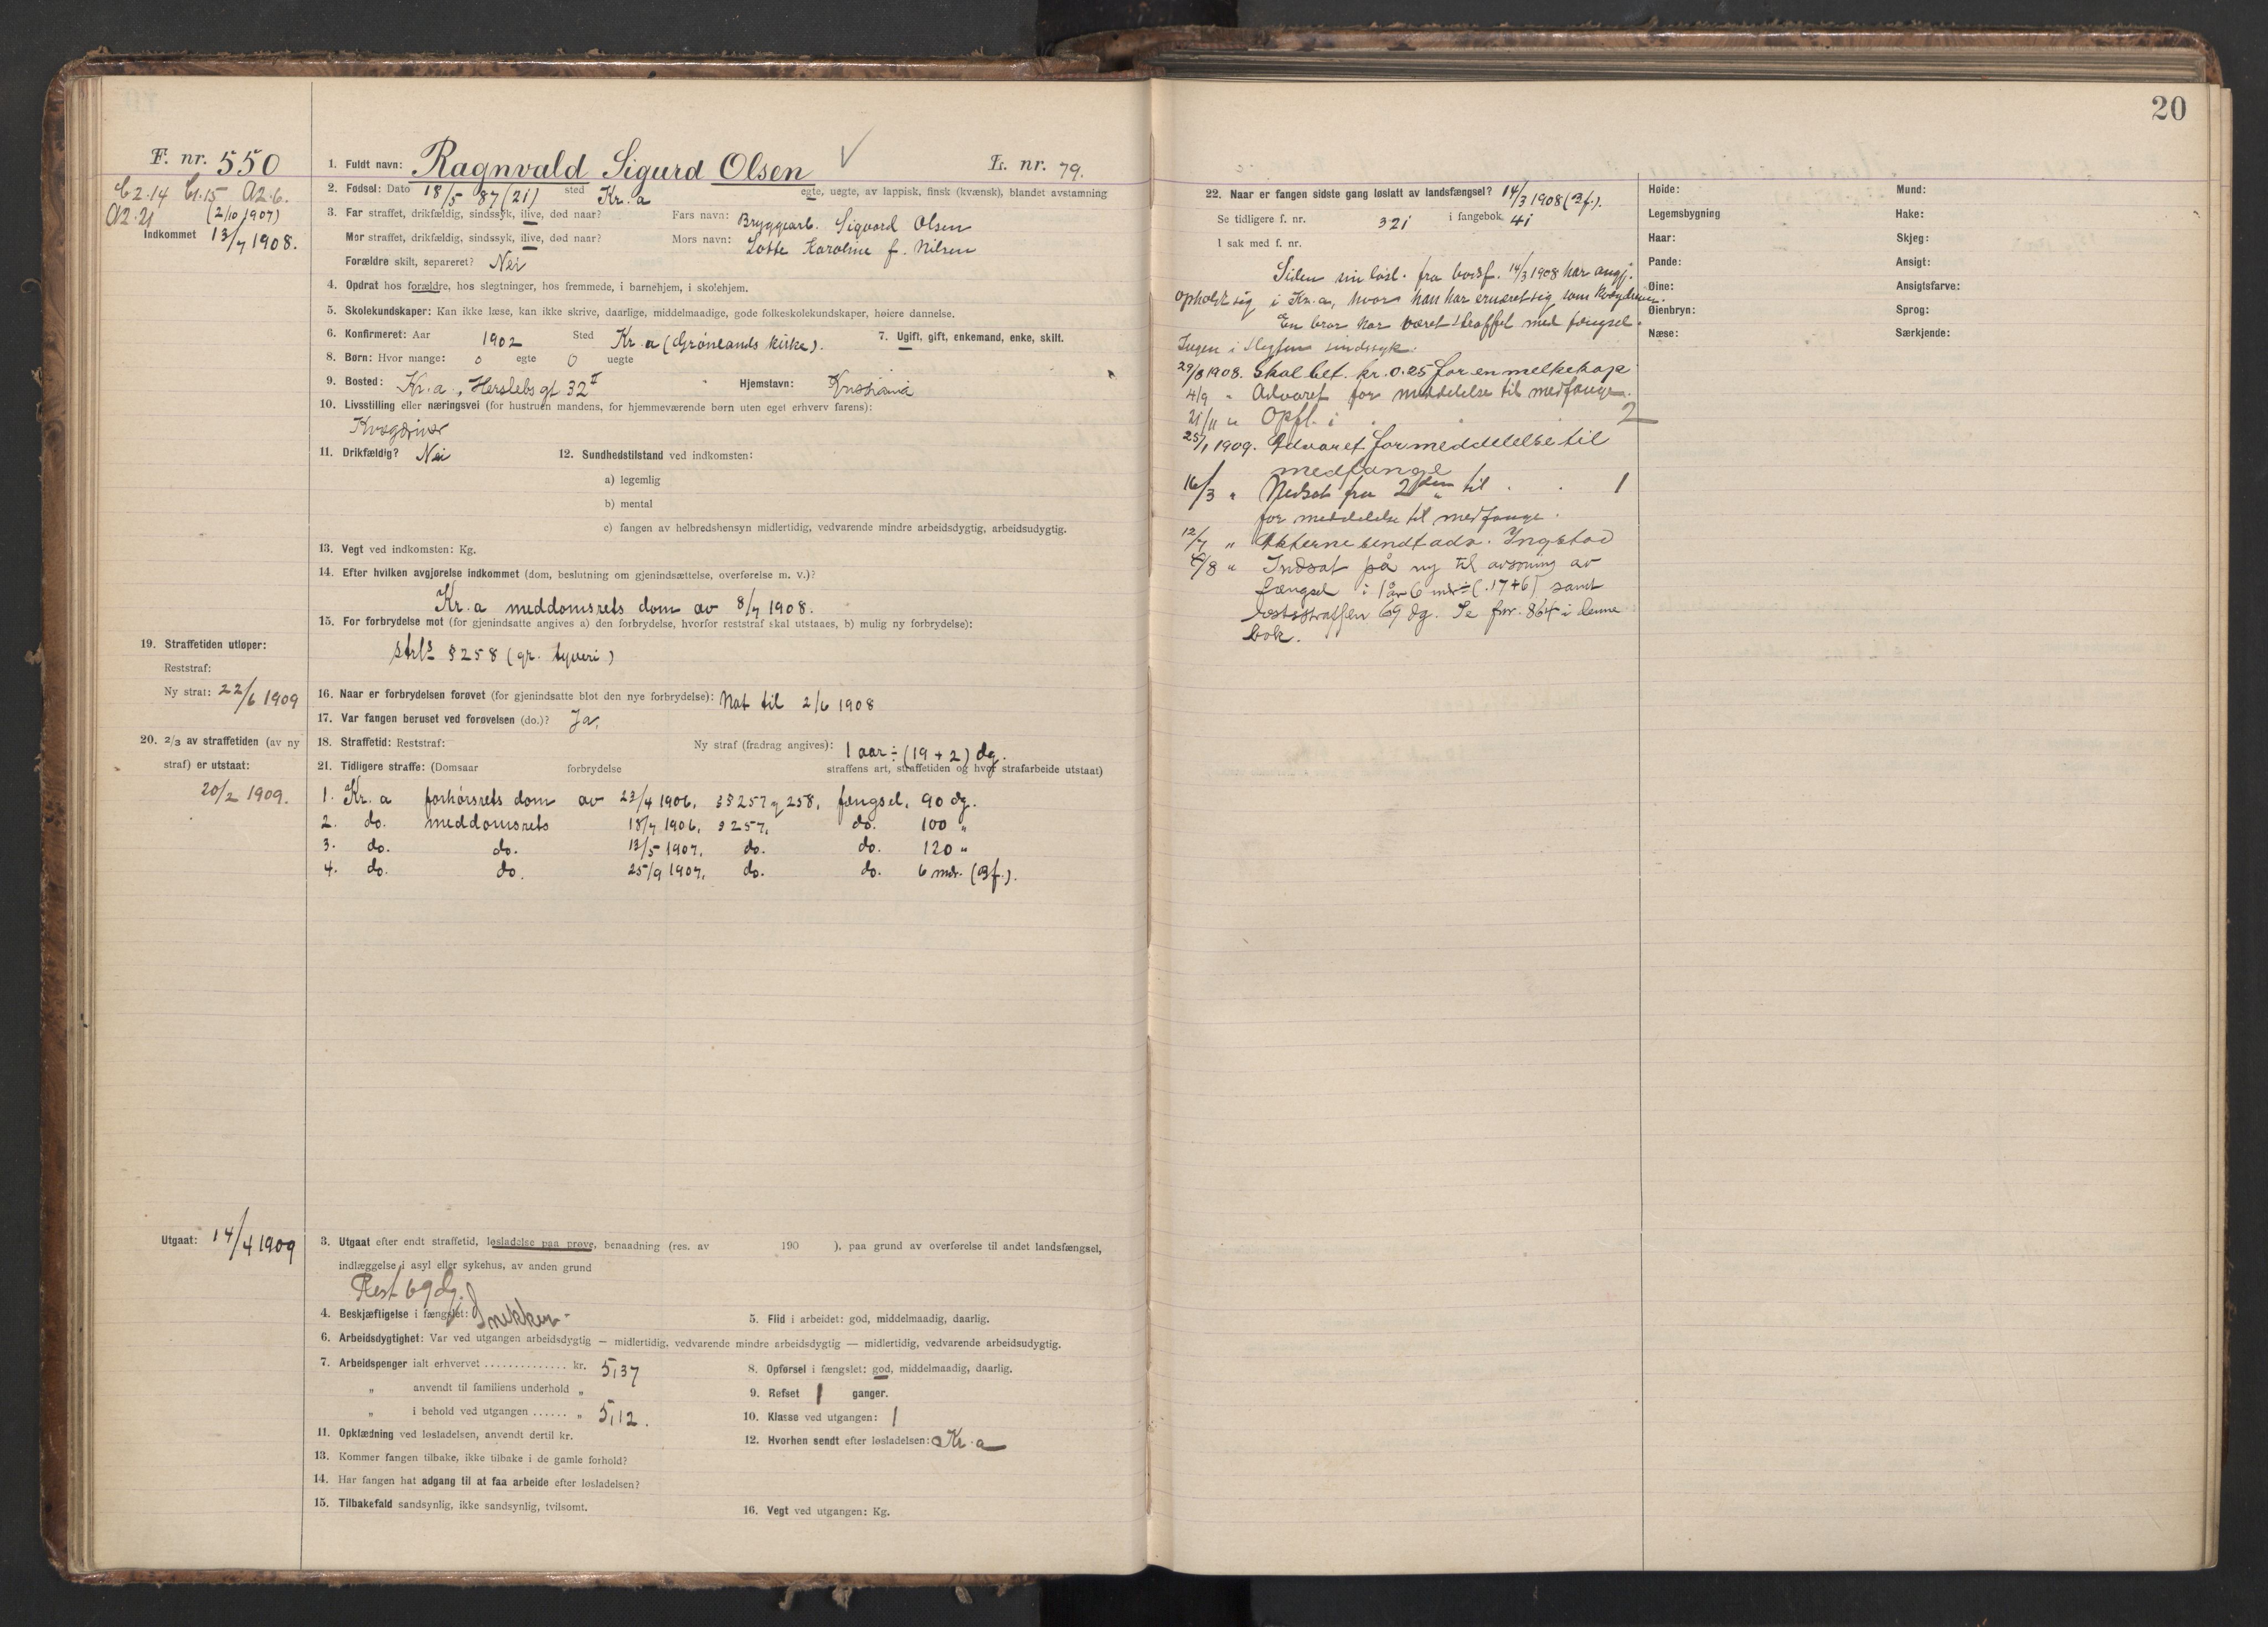 20
F. nr. 550
C2.14 C1.15 A2.6.
A2.21 (2/10 1907)
Indkommet 13/7 1908.
1. Fuldt navn: Ragnvald Sigurd Olsen
L. nr. 79.
2. Fødsel: Dato 18/5 87 (21) sted Kr.a egte, uegte, av lappisk, finsk (kvænsk), blandet avstamning
3. Far straffet, drikfældig, sindssyk, ilive, død naar? Fars navn: Bryggearb. Sigvard Olsen
Mor straffet, drikfældig, sindssyk, ilive, død naar? Mors navn: Lotte Karoline f. Nilsen
Forældre skilt, separeret? Nei
4. Opdrat hos forældre, hos slegtninger, hos fremmede, i barnehjem, i skolehjem.
5. Skolekundskaper: Kan ikke læse, kan ikke skrive, daarlige, middelmaadige, gode folkeskolekundskaper, høiere dannelse.
6. Konfirmeret: Aar 1902 Sted Kr.a (Grønlands kirke). 7. Ugift, gift, enkemand, enke, skilt.
8. Børn: Hvor mange: 0 egte 0 uegte
9. Bosted: Kr.a, Herslebs gt 32 II Hjemstavn: Kristiania
10. Livsstilling eller næringsvei (for hustruen mandens, for hjemmeværende børn uten eget erhverv farens):
Kvægdriver
11. Drikfældig? Nei 12. Sundhedstilstand ved indkomsten:
a) legemlig
b) mental
c) fangen av helbredshensyn midlertidig, vedvarende mindre arbeidsdygtig, arbeidsudygtig.
13. Vegt ved indkomsten: Kg.
14. Efter hvilken avgjørelse indkommet (dom, beslutning om gjenindsættelse, overførelse m. v.)?
Kr.a meddomsrets dom av 8/7 1908.
15. For forbrydelse mot (for gjenindsatte angives a) den forbrydelse, hvorfor reststraf skal utstaaes, b) mulig ny forbrydelse):
strls § 258 (gr. tyveri)
19. Straffetiden utløper:
Reststraf:
Ny straf: 22/6 1909
16. Naar er forbrydelsen forøvet (for gjenindsatte blot den nye forbrydelse): Nat til 2/6 1908
17. Var fangen beruset ved forøvelsen (do.)? Ja.
20. 2/3 av straffetiden (av ny straf) er utstaat:
20/2 1909.
18. Straffetid: Reststraf: Ny straf (fradrag angives): 1 aar ÷ (19 + 2) dg.
21. Tidligere straffe: (Domsaar forbrydelse straffens art, straffetiden og hvor strafarbeide utstaat)
1. Kr.a forhørsrets dom av 23/4 1906, §§ 257 og 258, fængsel, 90 dg.
2. do. meddomsrets 18/7 1906, § 257, do. 100 "
3. do. do. 13/5 1907, do. do. 120 "
4. do. do. 25/9 1907, do. do. 6 mdr. (Bf.).
Utgaat: 14/4 1909
3. Utgaat efter endt straffetid, løsladelse paa prøve, benaadning (res. av 190 ), paa grund av overførelse til andet landsfængsel,
indlæggelse i asyl eller sykehus, av anden grund
Rest 69 dg.
4. Beskjæftigelse i fængslet: Snekker 5. Flid i arbeidet: god, middelmaadig, daarlig.
6. Arbeidsdygtighet: Var ved utgangen arbeidsdygtig — midlertidig, vedvarende mindre arbeidsdygtig — midlertidig, vedvarende arbeidsudygtig.
7. Arbeidspenger ialt erhvervet .............. kr. 5,37 8. Opførsel i fængslet: god, middelmaadig, daarlig.
" anvendt til familiens underhold " 9. Refset 1 ganger.
" i behold ved utgangen ...... " 5,12. 10. Klasse ved utgangen: 1
11. Opklædning ved løsladelsen, anvendt dertil kr. 12. Hvorhen sendt efter løsladelsen: Kr.a
13. Kommer fangen tilbake, ikke tilbake i de gamle forhold?
14. Har fangen hat adgang til at faa arbeide efter løsladelsen?
15. Tilbakefald sandsynlig, ikke sandsynlig, tvilsomt. 16. Vegt ved utgangen: Kg.
22. Naar er fangen sidste gang løslatt av landsfængsel? 14/3 1908 (Bf.).
Se tidligere f. nr. 321 i fangebok 41
I sak med f. nr.
Siden sin løsl. fra bodsf. 14/3 1908 har angj.
opholdt sig i Kr.a, hvor han har ernæret sig som kvægdriver.
En bror har været straffet med fængsel.
Ingen i slegten sindssyk.
29/8 1908. Skal bet. kr. 0.25 for en melkekop
4/9 " Advaret for meddelelse til medfange.
21/11 " Opfl. i 2
25/1 1909. Advaret for meddelelse til
medfange
16/3 " Nedsat fra 2den til 1
for meddelelse til medfange.
12/7 " Akterne sendt adv. Ingstad
/8 " Indsat på ny til avsoning av
fængsel i 1 år 6 mdr ÷ (17+6) samt
reststraffen 69 dg. Se fnr. 864 i denne
bok.
Høide: Mund:
Legemsbygning Hake:
Haar: Skjeg:
Pande: Ansigt:
Øine: Ansigtsfarve:
Øienbryn: Sprog:
Næse: Særkjende: